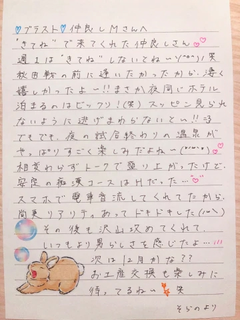 ♡ブラスト♡仲良しMさんへ
"きてね"で来てくれた仲良しさん
週1は"きてね"しないとね〜ヾ(^^)ﾉ 笑
秋田戦の前に逢いたかったから凄く
嬉しかったよー!!まさか夜同じホテル
泊まるのはビックリ!(笑)スッピン見られ
ないように逃げまわらないと…!!
でもでも、夜の試合終わりの温泉が
やっぱりすごく楽しみだよねー
相変わらずトークで盛り上がったけど、
安定の痴漢コースはHだった…♡
スマホで電車音流してくれてたから
間東リアリティあってドキドキした
その後も沢山攻めてくれて
いつもより男らしさを感じたよ…!!!
次は12月かな??
お土産交換も楽しみに
待ってるねー♡笑
そらのより